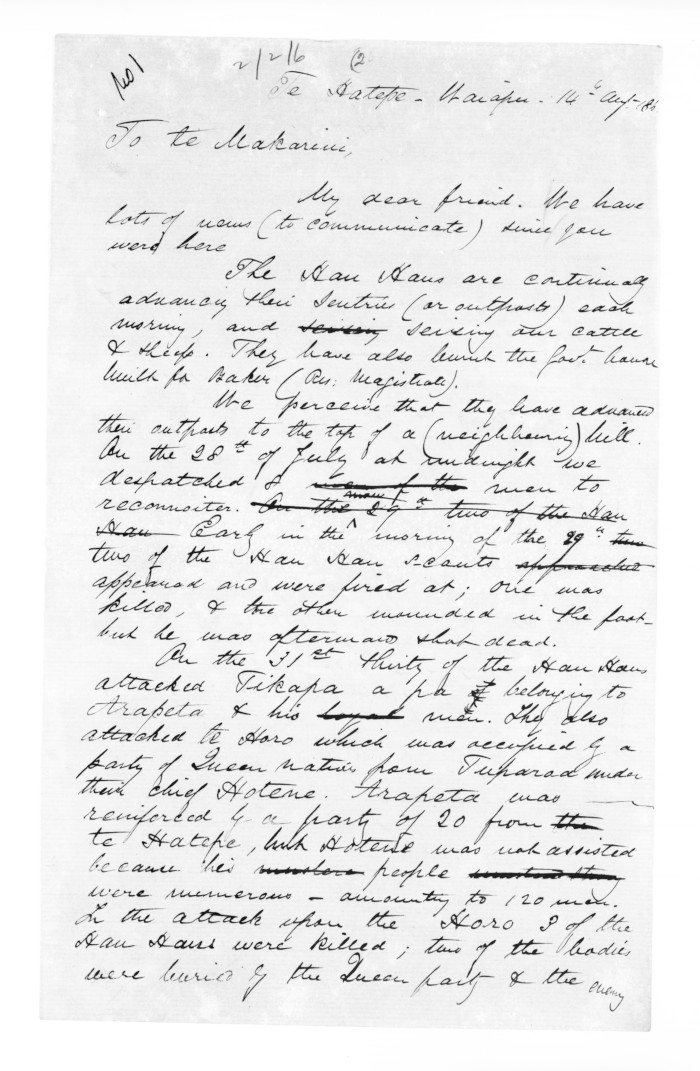 No 1
2/2/6 (2
Te Hatepe - Waiapu - 14th Aug 186
To te Makarini,
My dear friend. We have
lots of news (to communicate) since you
were here
The Hau Haus are continually
advancing their Sentries (or outposts) each
morning, and seizing seizing our cattle
& sheep. They have also burnt the Govt. house
built for Baker (Res: Magistrate).
We perceive that they have advanced
their outposts to the top of a (neighbouring) hill.
On the 28th of July at midnight we
despatched 8 men of the men to
reconnoiter. On the 29th two of the Hau
Hau Early in the morning of the 29th two
two of the Hau Hau scouts approached
appeared and were fired at; one was
killed, & the other wounded in the foot -
but he was afterwards shot dead.
On the 31st thirty of the Hau Haus
attacked Tikapa a pa belonging to
Arapeta & his loyal men. They also
attacked te Horo which was occupied by a
party of Queen natives from Tuparoa under
their chief Hotene. Arapeta was
reinforced by a party of 20 from the
te Hatepe, but Hotene was not assisted
because his people
were numerous - amounting to 120 men.
In the attack upon the Horo 3 of the
Hau Haus were killed; two of the bodies
were buried by the Queen party & the enemy